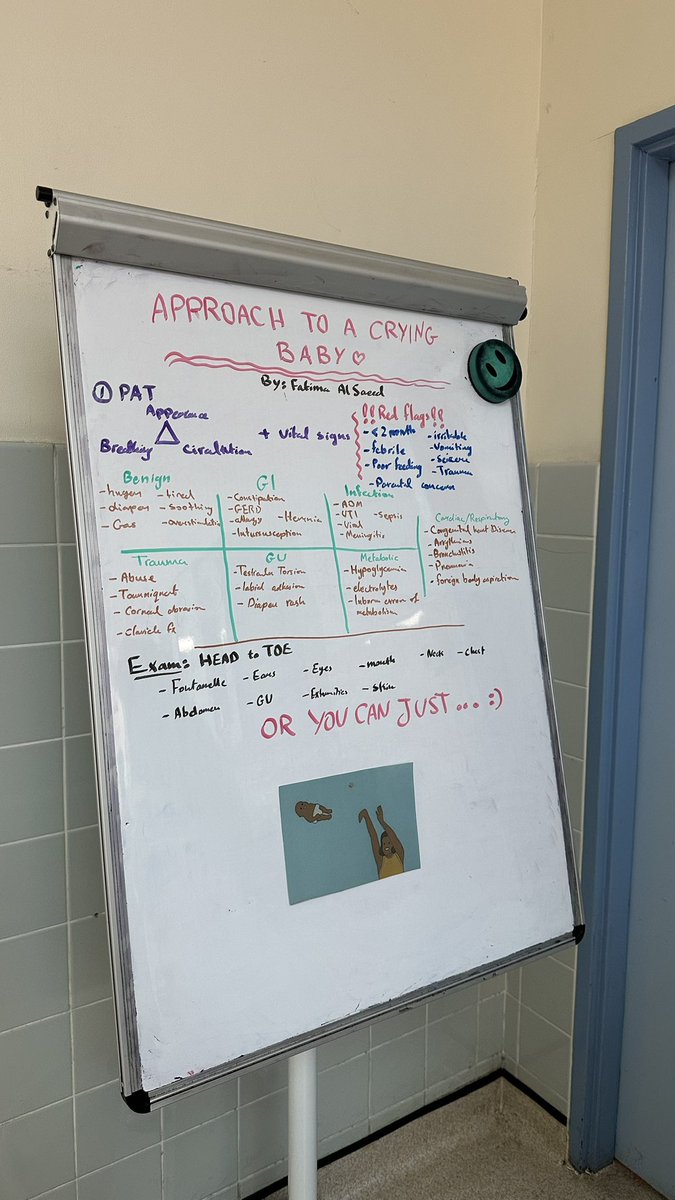 APPROACH TO A CRYING
BABY♡
By: Fatima AlSaeed
① PAT
Appearance
Breathing
Circulation
+ Vital signs
!! Red flags !!
- <2 month
- febrile
- Poor feeding
- Parental concern
- irritable
- Vomiting
- Seizure
- Trauma
Benign
- hunger
- diaper
- Gas
- tired
- Soothing
- Overstimulation
GI
- Constipation
- GERD
- allergy
- Intussusception
- Hernia
Infection
- AOM
- UTI
- Viral
- Meningitis
- Sepsis
Cardiac/Respiratory
- Congenital heart Disease
- Arrythmias
- Bronchiolitis
- Pneumonia
- foreign body aspiration
Trauma
- Abuse
- Tourniquet
- Corneal abrasion
- Clavicle fx
GU
- Testicular Torsion
- labial adhesion
- Diaper rash
Metabolic
- Hypoglycemia
- electrolytes
- Inborn error of
metabolism
Exam: HEAD to TOE
- Fontanelle
- Ears
- Eyes
- mouth
- Neck
- Chest
- Abdomen
- GU
- Extremities
- Skin
OR YOU CAN JUST... :)